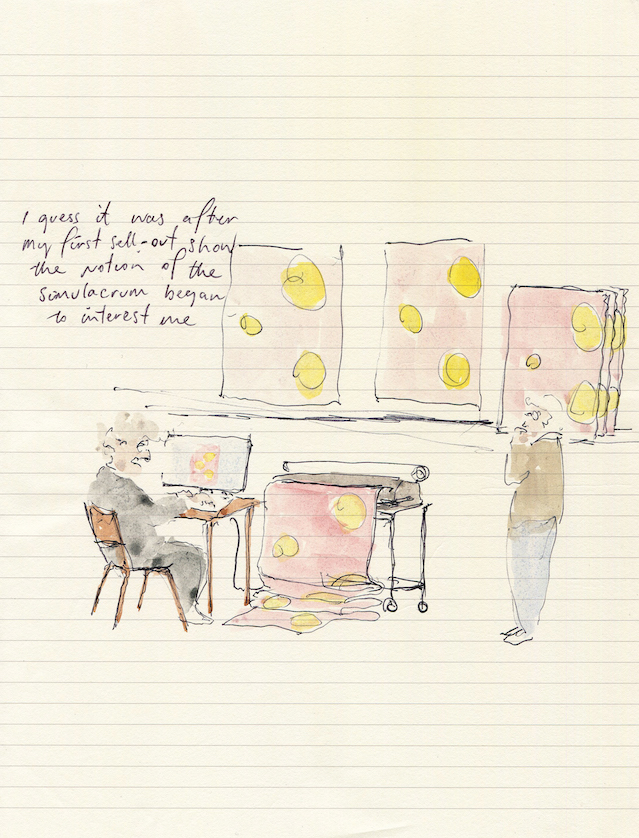 I guess it was after
my first sell-out show
the notion of the
simulacrum began
to interest me